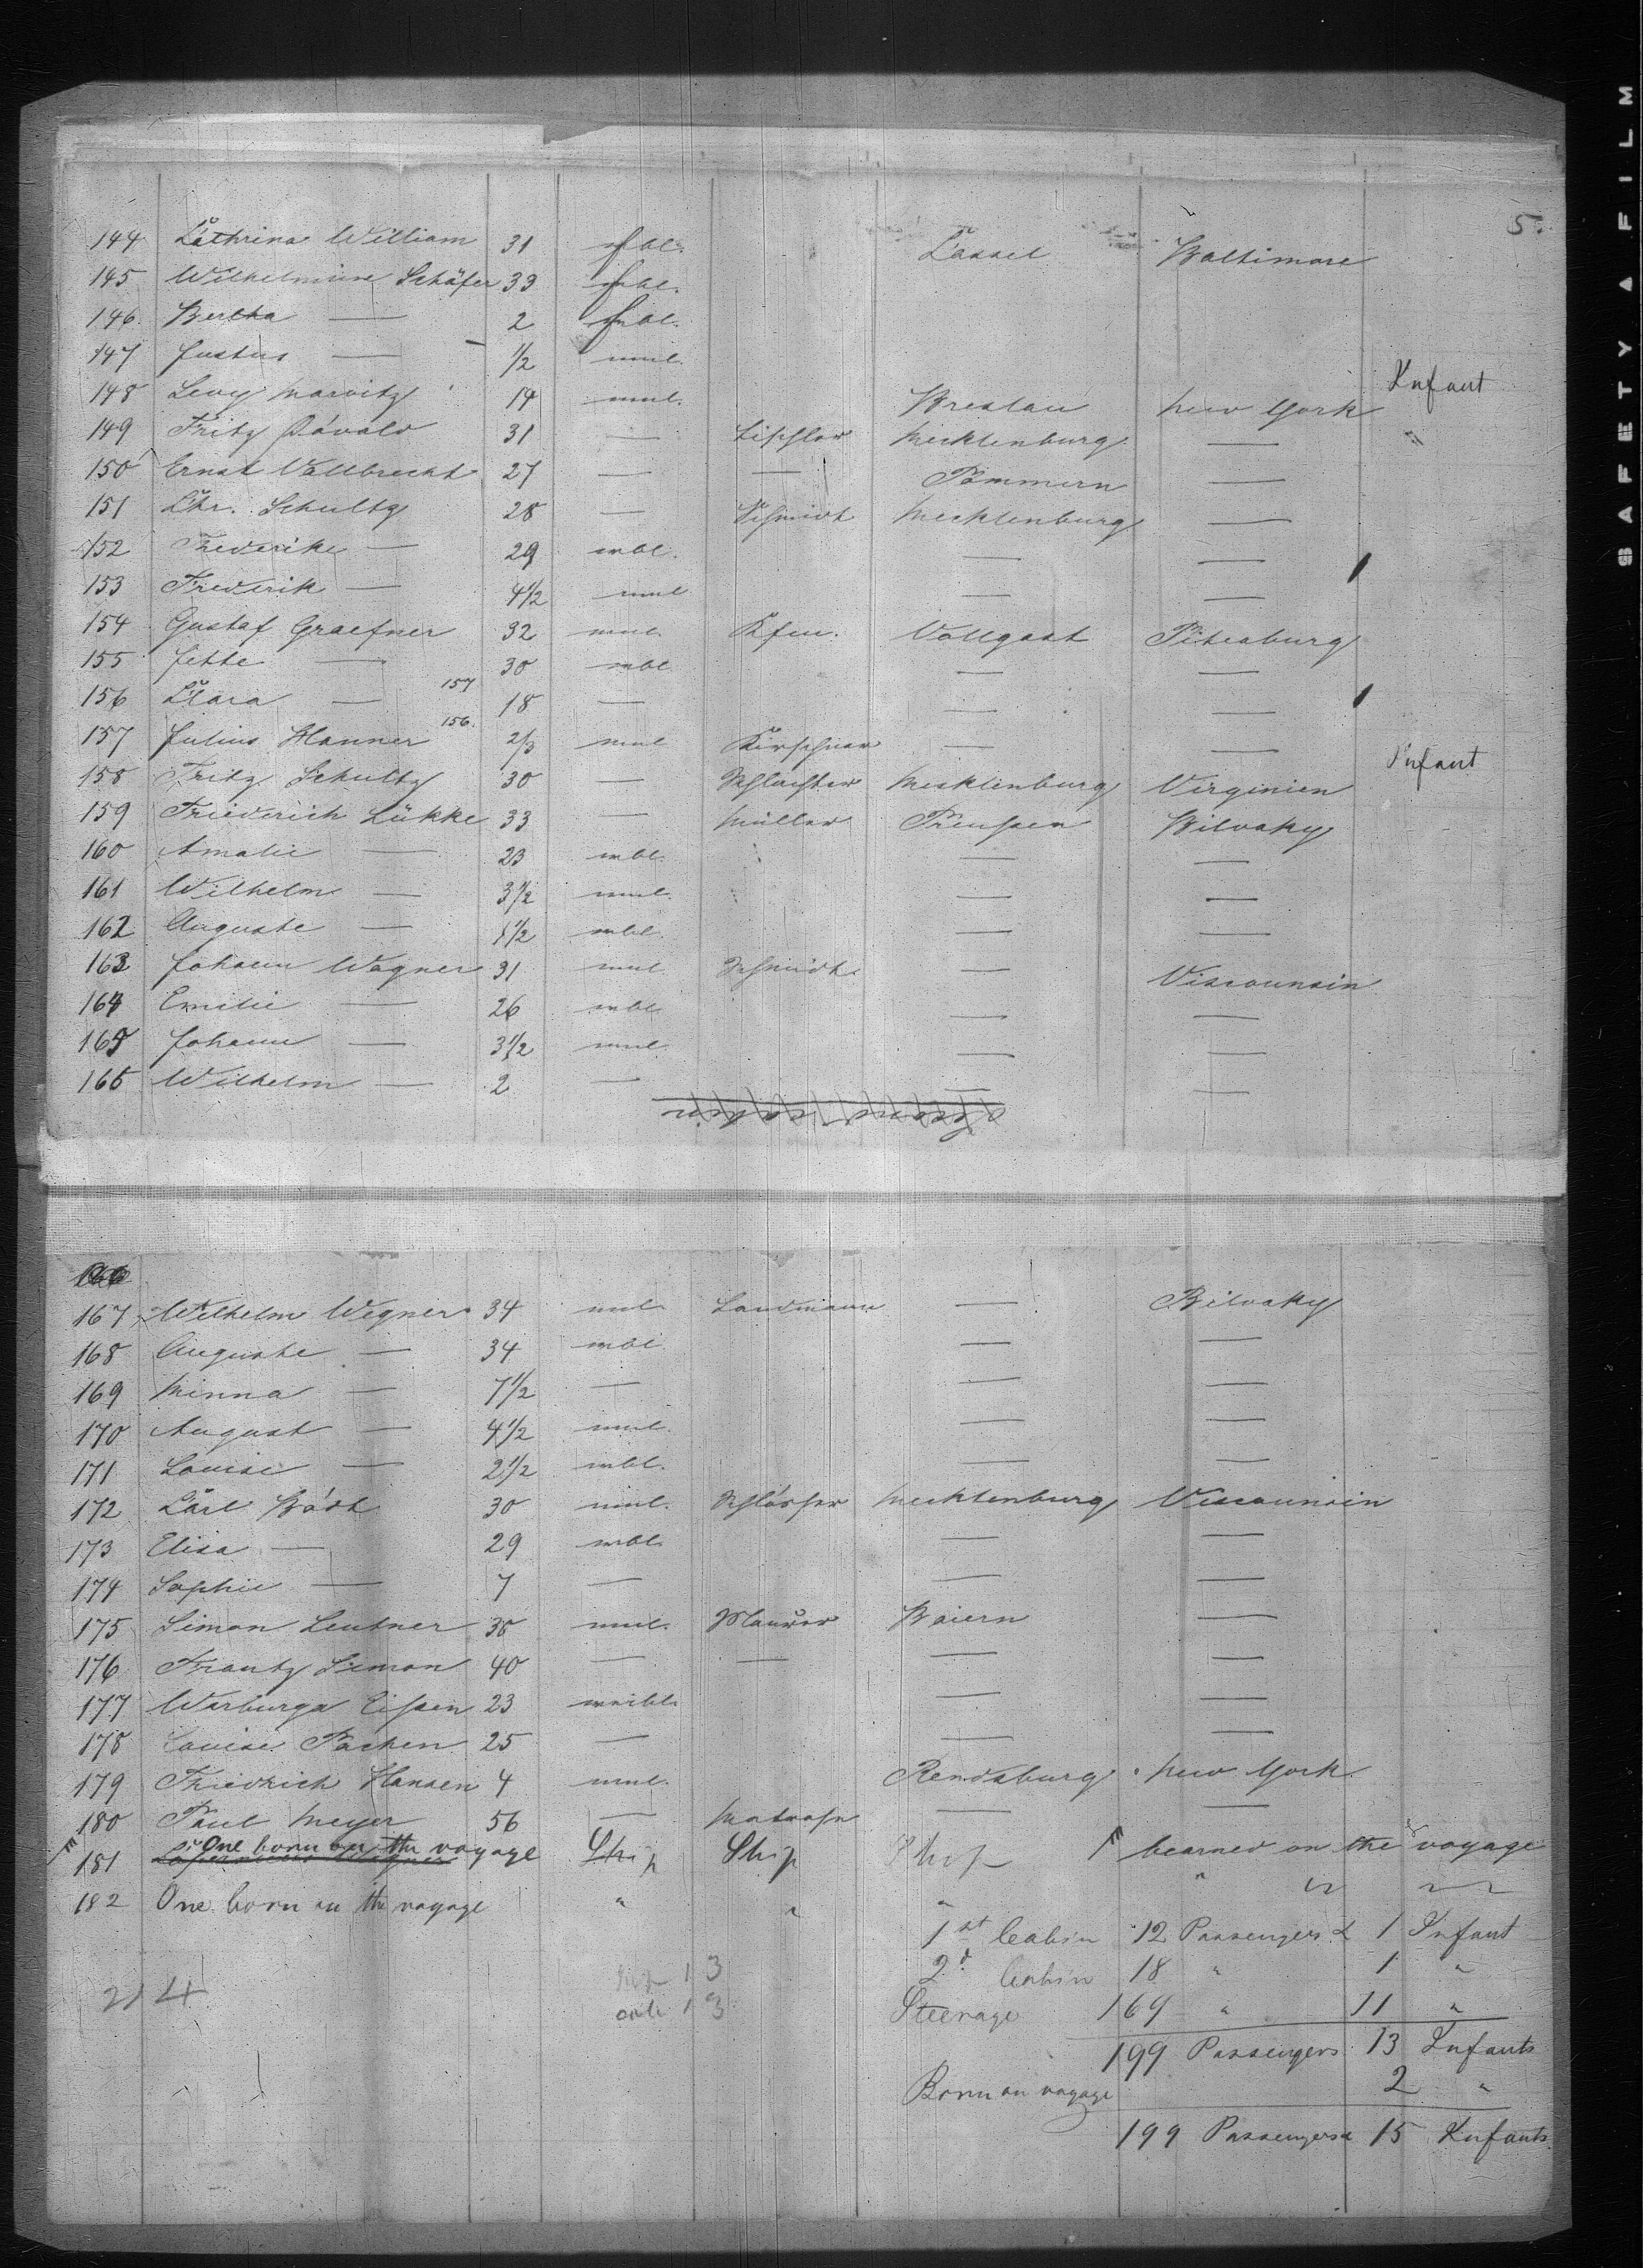 5.
144 Cathrina William 31 fbl. Cassel Baltimore
145 Wilhelmine Schäfer 33 fbl.
146 Bertha — 2 fbl.
147 Justus — 1/2 mnl. Infant
148 Levy Marvitz 14 mnl. Breslau New York
149 Fritz Dávald 31 — Tischler Mecklenburg — "
150 Ernst Vallbrecht 27 — — Pommern —
151 Chr. Schultz 28 — Schmidt Mecklenburg —
152 Frederike — 29 wbl. — —
153 Frederik — 4 1/2 mnl — —
154 Gustaf Graefner 32 mnl. Kfm. Vollgast Pitesburg
155 Jette — 30 wbl — —
156 Clara — 157 18 — — —
157 Julius Hanner 156. 2/3 mnl Kürschner — — Infant
158 Fritz Schultz 30 — Schlachter Mecklenburg Virginien
159 Friederich Lükke 33 — Müller Preussen Bilvaky
160 Amalie — 23 wbl. — —
161 Wilhelm — 3 1/2 mnl. — —
162 Auguste — 1 1/2 wbl. — —
163 Johann Wagner 31 mnl Schmidt — Viscounsin
164 Emilie — 26 wbl — —
165 Johann — 3 1/2 mnl — —
165 Wilhelm — 2 — — —
166
167 Wilhelm Wegner 34 mnl Landmann — Bilvaky
168 Auguste — 34 wbl — —
169 Minna — 7 1/2 — — —
170 August — 4 1/2 mnl. — —
171 Louise — 2 1/2 wbl. — —
172 Carl Bádt 30 mnl. Schlösser Mecklenburg Viscounsin
173 Elisa — 29 wbl. — —
174 Sophie — 7 — — —
175 Simon Leutner 38 mnl. Maurer Baiern —
176 Frantz Simon 40 — — — —
177 Warburga Eissen 23 weibl. — —
178 Louise Pachen 25 — — —
179 Friedrich Hansen 4 mnl. Rendsburg New York
180 Paul Meyer 56 — Matrose — —
181 One born on the voyage Ship Ship Ship bearned on the voyage
182 One born on the voyage " " " "
1st Cabin 12 Passengers & 1 Infant
2d Cabin 18 " 1 "
214 Steerage 169 " 11 "
199 Passengers 13 Infants
Born on voyage 2 "
199 Passengers & 15 Infants
SAFETY A FILM